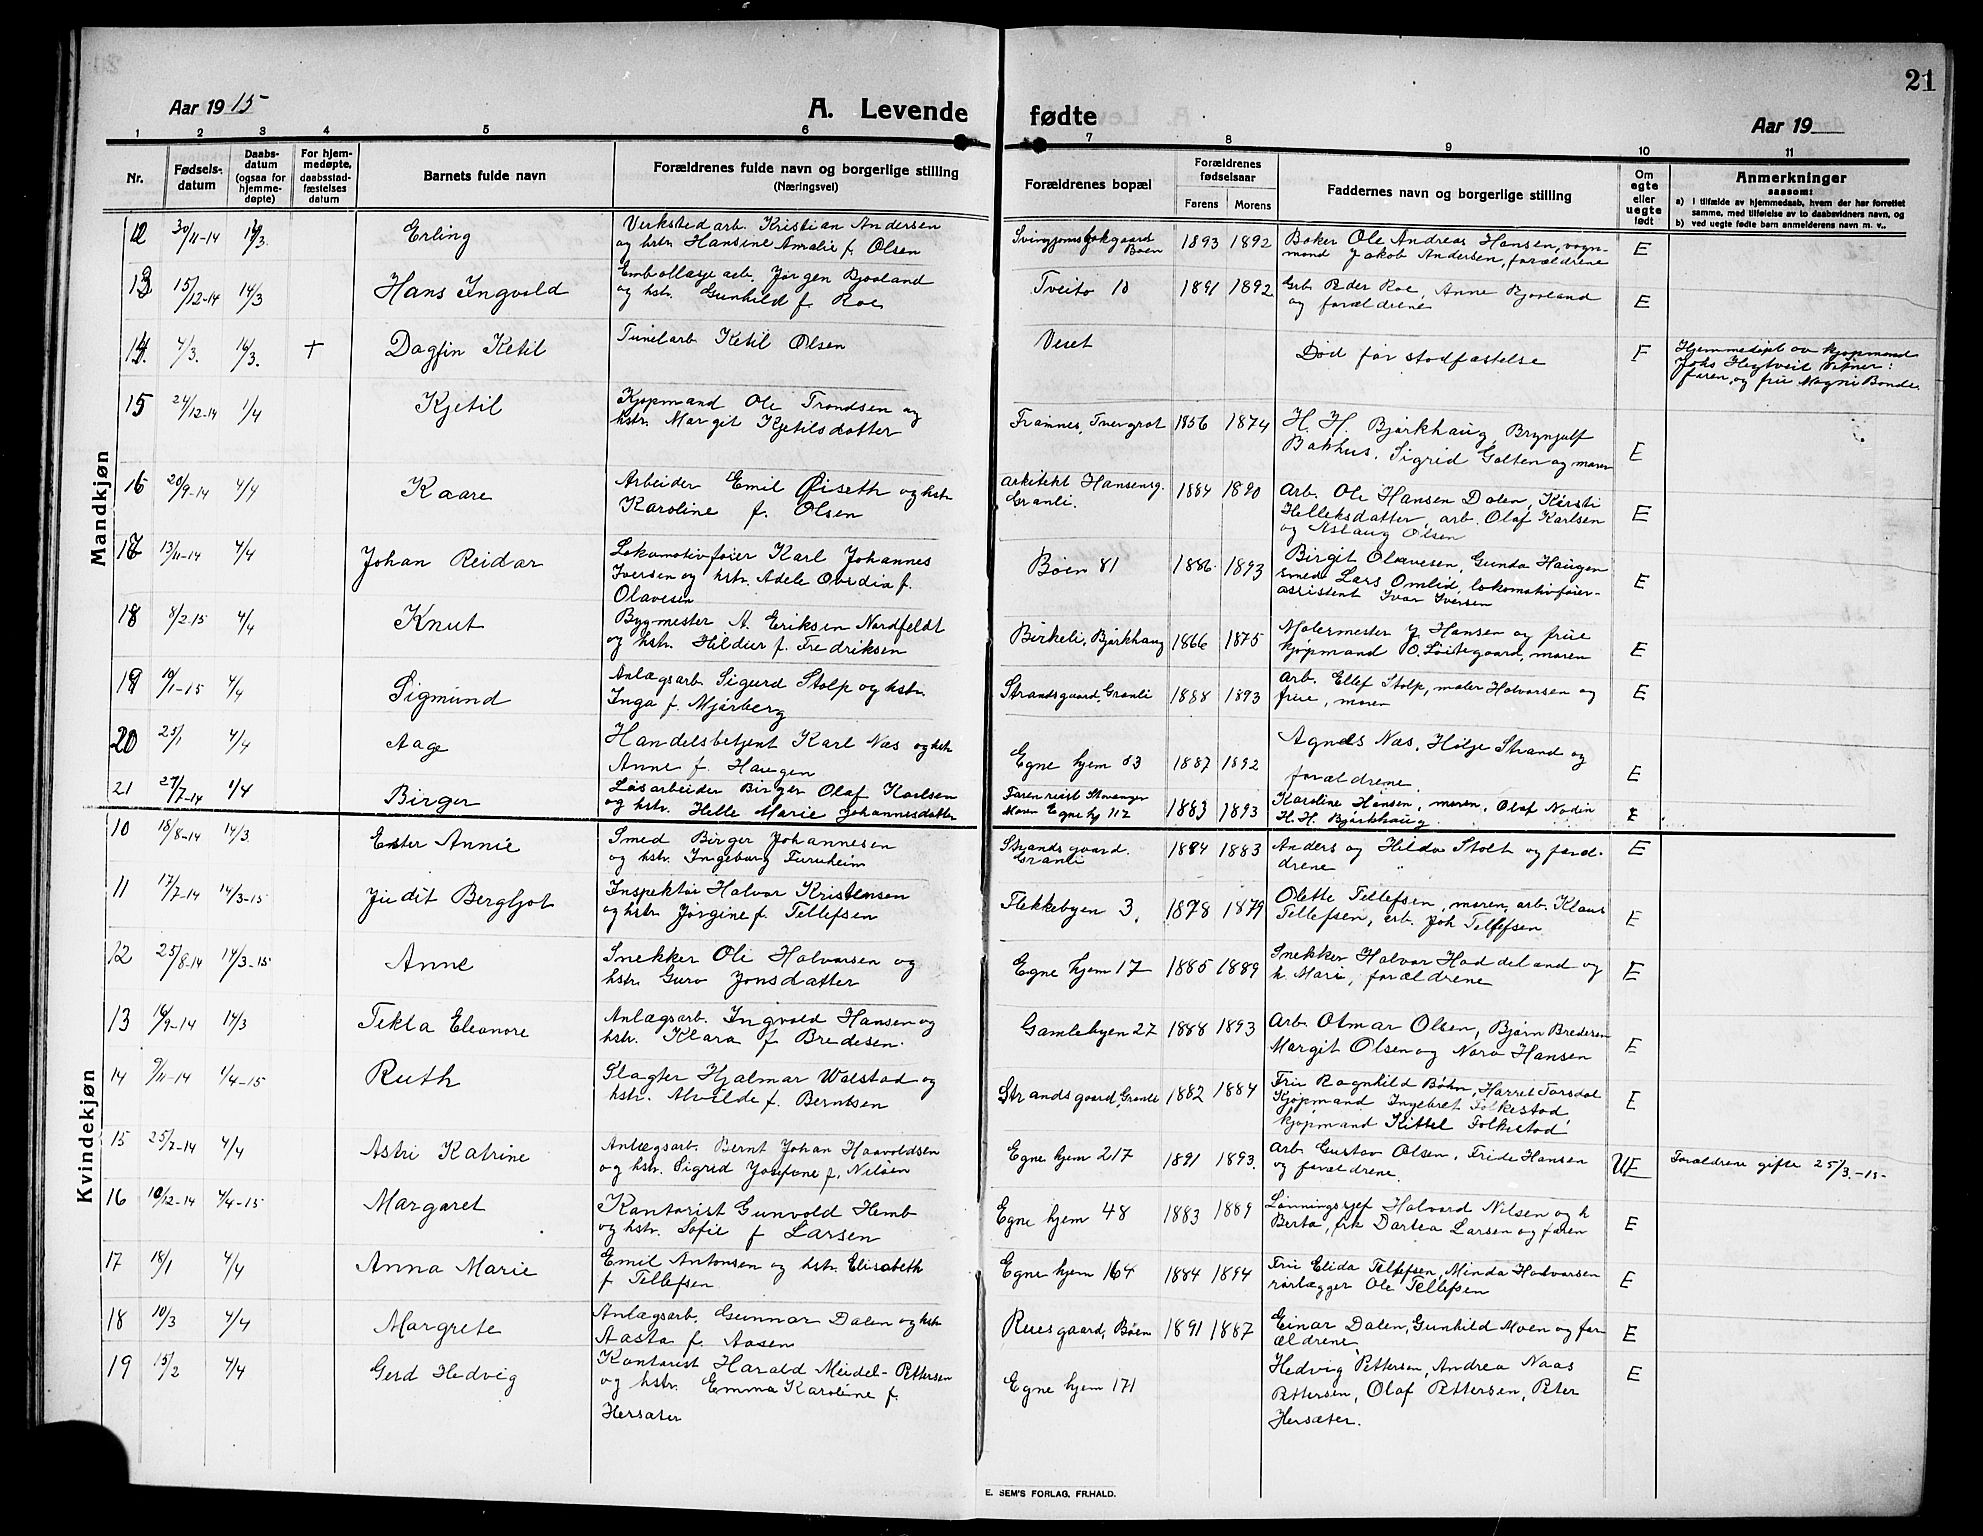 21
Aar 1915
A. Levende fødte
Aar 19
1 2 3 4 5 6 7 8 9 10 11
Nr.
Fødsels-
datum
Daabs-
datum
(ogsaa for
hjemme-
døpte)
For hjem-
medøpte,
daabsstad-
fæstelses
datum
Barnets fulde navn
Forældrenes fulde navn og borgerlige stilling
(Næringsvei)
Forældrenes bopæl
Forældrenes
fødselsaar
Farens Morens
Faddernes navn og borgerlige stilling
Om
egte
eller
uegte
født
Anmerkninger
saasom:
a) i tilfælde av hjemmedaab, hvem der har forrettet
samme, med tilføielse av to daabsvidners navn, og
b) ved uegte fødte barn anmelderens navn m. v..
Mandkjøn
12 30/11-14 14/3 Erling
Verkstedarb. Kristian Andersen
og hstr. Hansine Amalie f. Olsen
Boen 1893 1892
Baker Ole Andreas Hansen, vogn-
mand Jakob Andersen, forældrene E
13 15/12-14 14/3 Hans Ingvald
Emballasje arb. Jørgen Bjaaland
og hstr. Gunhild f. Roe
Tveito 10 1891 1892
Grb. Peder Roe, Anne Bjaaland
og forældrene E
14. 4/3. 16/3. + Dagfin Ketil
Tunelarb Ketil Olsen
Veset
Død før stadfæstelse
Hjemmedøpt av kjøpmand
Johs Hegtveit Vitner:
faren, og frue Magni Bonde
15 24/12-14 1/4 Kjetil
Kjøpmand Ole Trondsen og
hstr. Margit Kjetilsdatter
Framnes, 1856 1874
H. H. Bjørkhaug, Brynjulf
Bakhus, Sigrid Galten og moren E
16 20/9-14 4/4 Kaare
Arbeider Emil Øiseth og hstr
Karoline f. Olsen
arkitekt Hansensg.
Granli. 1884 1890
Arb. Ole Hansen Dalen, Kirsti
Helleksdatter, arb. Olaf Karlsen
og Aslaug Olsen E
17 13/11-14 4/4 Johan Reidar
Lokomotivføier Karl Johannes
Iversen og hstr. Adele Ovidia f.
Olavesen
Bøen 81 1886 1893
Birgit Olavesen, Gunda Haugen
smed Lars Omlid, lokomotivføier-
assistent Ivar Iversen E
18 8/2.15 4/4 Knut
Bygmester A. Eriksen Nordfeldt
og hstr. Hildur f. Fredriksen
Birkeli, Bjørkhaug 1866 1875
Malermester J. Hansen og frue
kjøpmand O. Loitegaard, moren E
19 10/1-15 4/4 Sigmund
Anlægsarb. Sigurd Stolp og hstr.
Inga f. Mjørberg
Strandsgaard, Granli 1888 1893
Arb. Ellef Stolp, maler Halvorsen og
frue, moren E
20 25/1 4/4 Aage
Handelsbetjent Karl Næs og hstr
Anne f. Haugen
Egne hjem 83 1887 1892
Agnes Næs, Helje Strand og
forældrene. E
21 27/7-14 4/4 Birger
Løsarbeider Birger Olaf Karlsen
og hstr. Helle Marie Johannesdatter
Faren reist Stavanger
Moren Egne hj 112 1883 1893
Karoline Hansen, moren, Olaf Nodin
H. H. Bjørkhaug. E
Kvindekjøn
10 18/8-14 14/3 Ester Annie
Smed Birger Johannesen
og hstr. Ingeborg Furuheim
Strandsgaard.
Granli 1884 1883
Anders og Hilda Stolt og foræl-
drene E
11 17/7-14 14/3-15 Judit Bergljot
Inspektør Halvor Kristensen
og hstr. Jørgine f. Tellefsen
Flekkebyen 3. 1878 1879
Olette Tellefsen, moren, arb. Klaus
Tellefsen, arb. Joh Tellefsen E
12 25/8-14 14/3-15 Anne
Snekker Ole Halvorsen og
hstr. Guro Jonsdatter
Egne hjem 17 1885 1889
Snekker Halvor Haddeland og
h. Mari, forældrene E
13 16/9-14 14/3 Tekla Eleonore
Anlægsarb. Ingvald Hansen og
hstr. Klara f Bredesen.
Gamlebyen 27 1888 1893
Arb. Otmar Olsen, Bjørn Bredesen
Margit Olsen og Nora Hansen E
14 9/11-14 4/4-15 Ruth
Slagter Hjalmar Walstad og
hstr. Alvilde f. Berntsen
Strandsgaard, Granli 1882 1884
Fru Ragnhild Bøhn, Harret Tarsdal
Kjøpmand Ingebret Folkestad
kjøpmand Kittel Folkestad E
15 25/7-14 4/4 Astri Katrine
Anlægsarb. Bernt Johan Haavoldsen
og hstr. Sigrid Josefine f. Nilsen
Egne hjem 217 1891 1893.
Arb. Gustav Olsen, Fride Hansen
og forældrene. UE
Forældrene gifte 25/3.-15-
16 10/12-14 4/4-15 Margaret
Kontorist Gunvold Hemb
og hstr. Sofie f Larsen
Egne hjem 48 1883 1889
Lønningssjef Halvard Nilsen og h
Berta, frk Dortea Larsen og faren E
17 18/1 4/4 Anna Marie
Emil Antonsen og hstr. Elisabeth
f Tellefsen
Egne hjem 164 1884 1894
Fru Elida Tellefsen, Minda Halvorsen
rørlægger Ole Tellefsen E
18 10/3 4/4 Margrete
Anlægsarb. Gunnar Dalen og hstr
Aasta f. Aasen
Ruesgaard, Bøen 1891 1887
Einar Dalen, Gunhild Moen og for-
ældrene E
19 15/2 4/4 Gerd Hedvig
Kontorist Harald Meidel-Pettersen
og hstr. Emma Karoline f.
Hersæter
Egne hjem 171
Hedvig Pettersen, Andrea Naas
Pettersen, Olaf Pettersen, Peter
Hersæter. E
E. SEM'S FORLAG, FR.HALD.